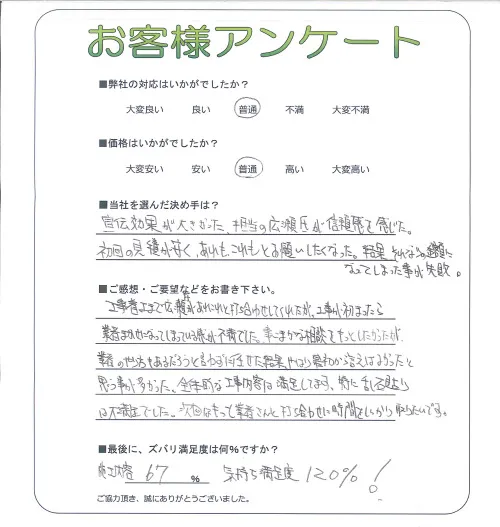 お客様アンケート
■弊社の対応はいかがでしたか？
大変良い 良い 普通 不満 大変不満
■価格はいかがでしたか？
大変安い 安い 普通 高い 大変高い
■当社を選んだ決め手は？
宣伝効果が大きかった、担当の広瀬氏が信頼感を感じた。
初回の見積が安く、あれも、これもとお願いしたくなった。結果それなりの金額に
なってしまった事が失敗。
■ご感想・ご要望などをお書き下さい。
工事着工まで広瀬があれこれと打ち合わせしてくれたが、工事が初まったら
業者まかせになってしまっている感が不満でした。事こまかな相談をもっとしたかったが
業者のやり方もあるだろうと言わずに任せた結果、やはり最初から言えばよかったと
思う事が多かった。全体的な工事内容は満足してます。特に
は不満足でした。次回はもっと業者さんと打ち合わせに時間をしっかり取りたいです。
■最後に、ズバリ満足度は何％ですか？
施工内容 67 % 気持ち満足度 120%!
ご協力頂き、誠にありがとうございました。